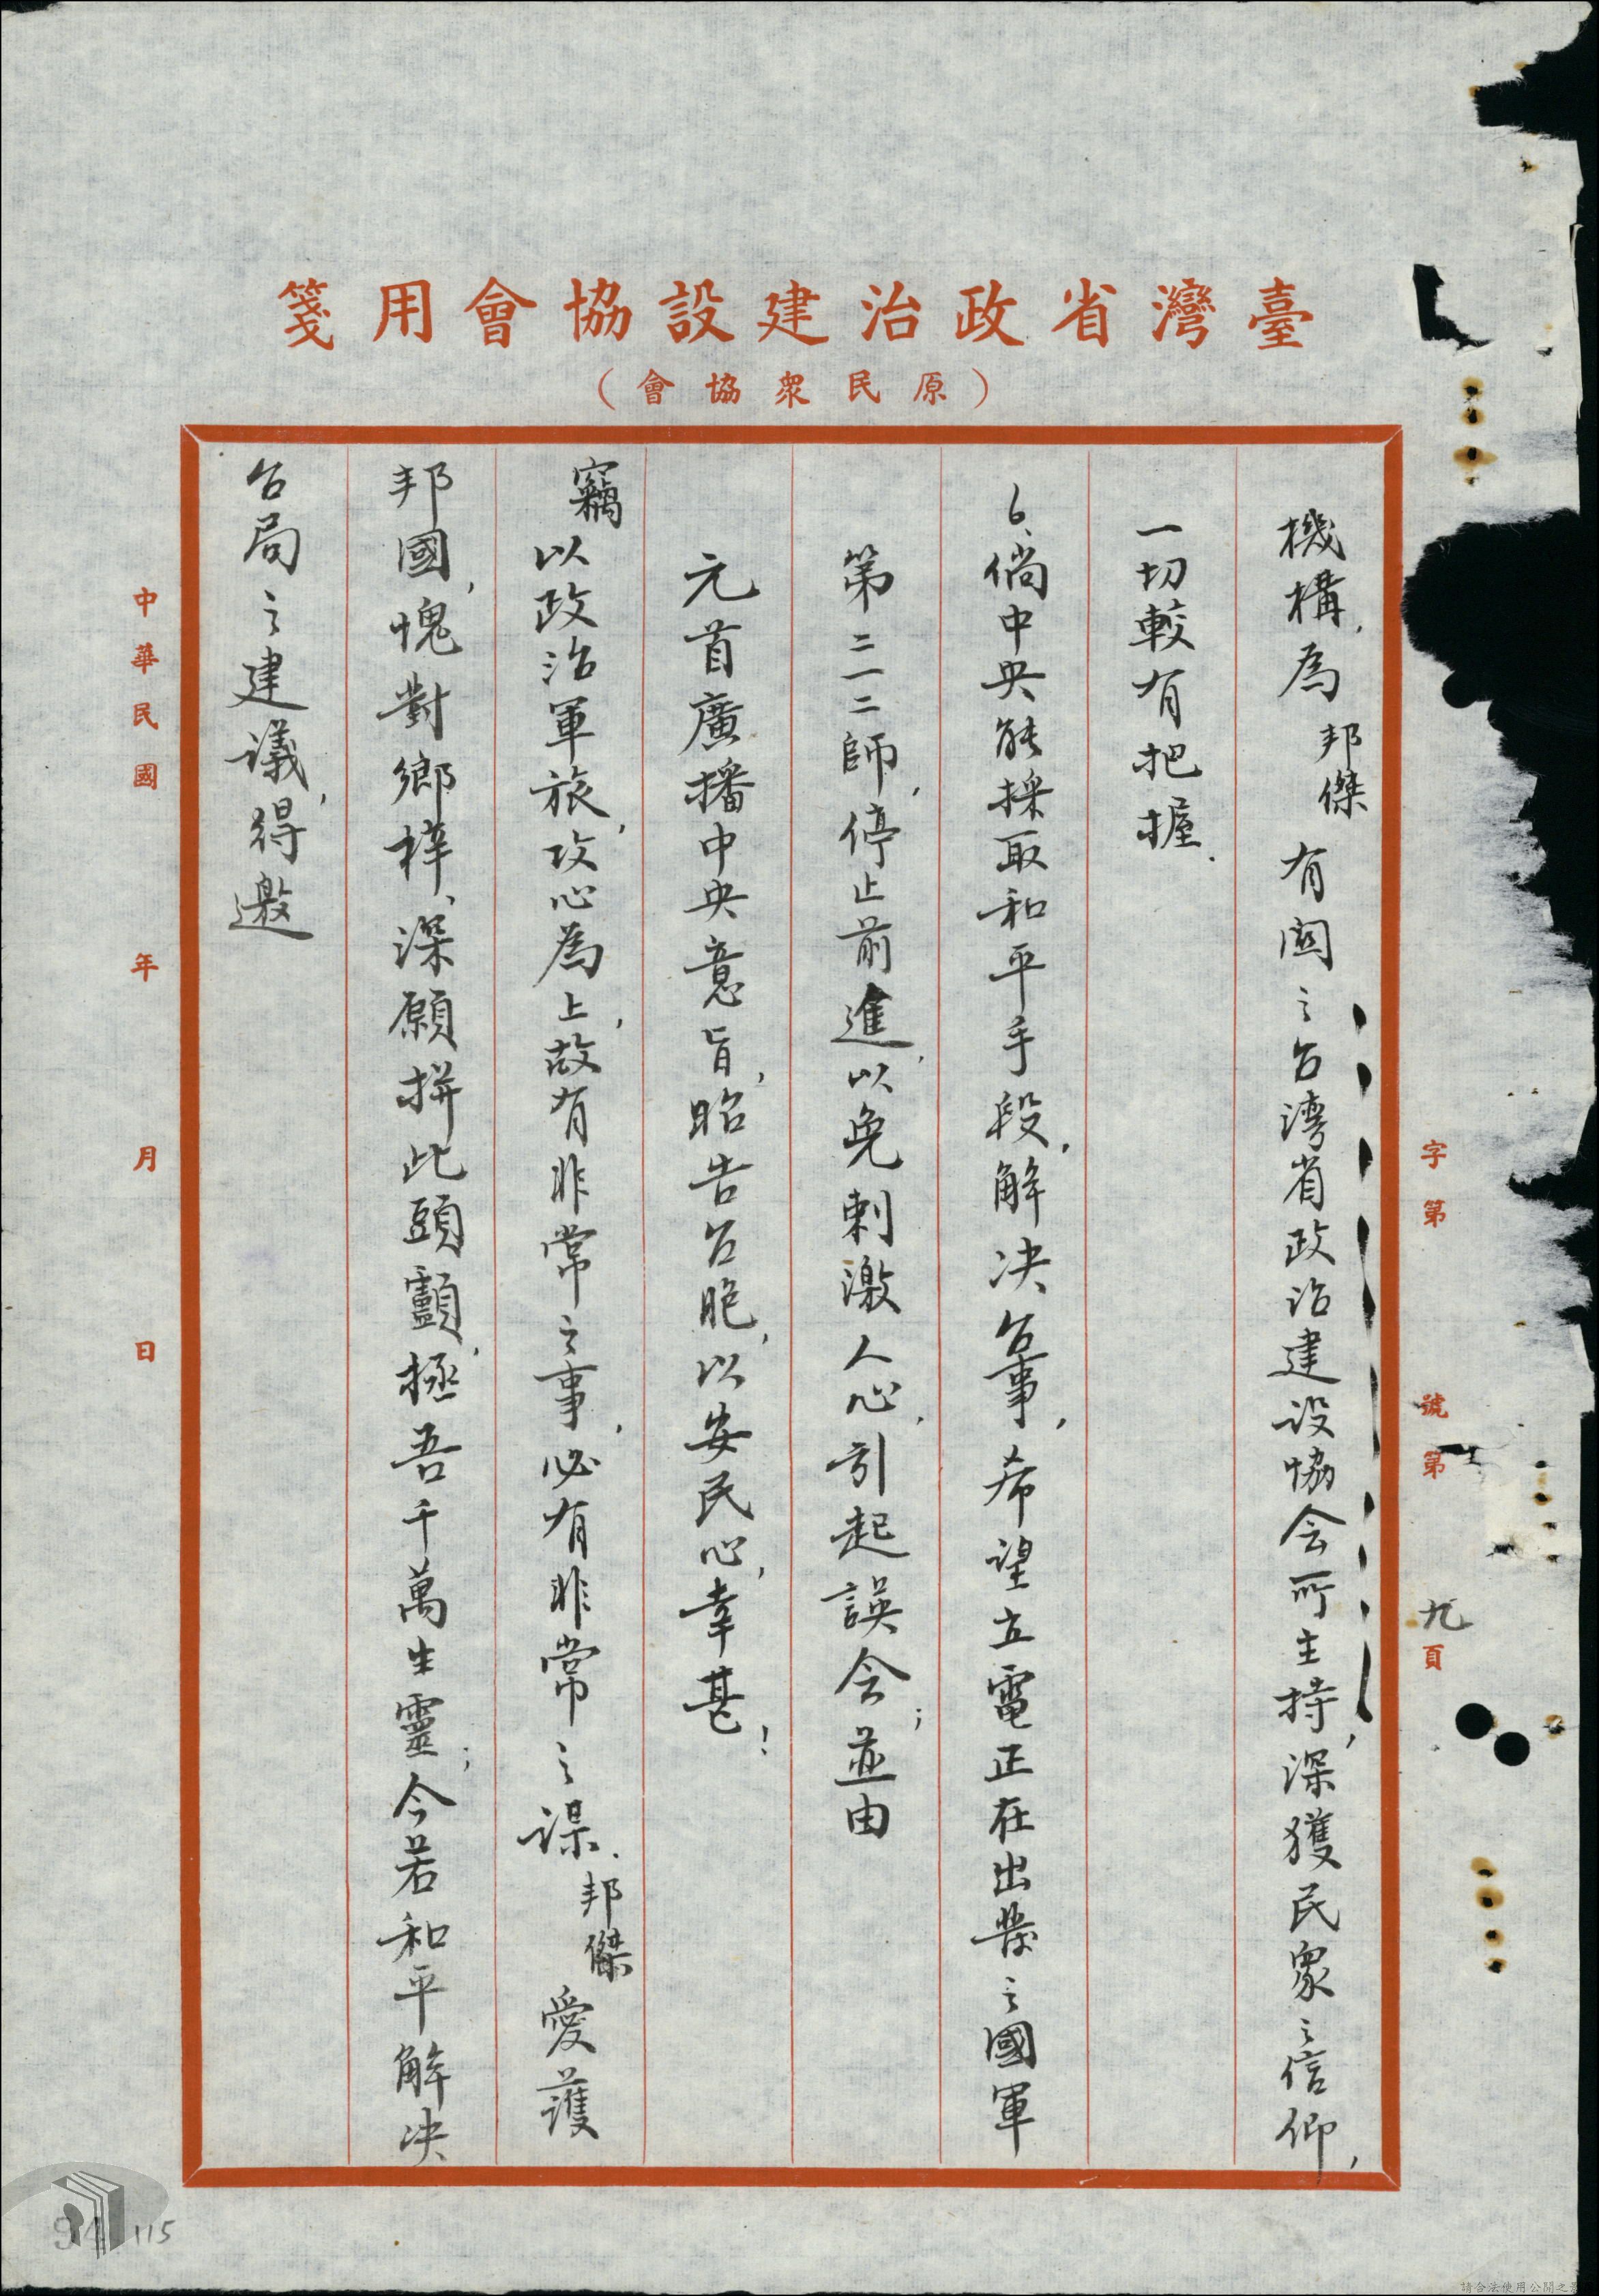 臺灣省政治建設協會用箋
（原民眾協會）
字第　號第九頁
機構，為邦傑有関之台湾省政治建設協会所主持，深獲民眾之信仰，
一切較有把握．
6、倘中央能採取和平手段，解决台事，希望立電正在出發之國軍
第二一二師，停止前進，以免刺激人心，引起誤会；並由
元首廣播中央意旨，昭告台胞，以安民心，幸甚！
竊以政治軍旅，攻心為上，故有非常之事，必有非常之謀．邦傑愛護
邦國，愧對鄉梓、深願拼此頭顱，拯吾千萬生靈；今若和平解决
台局之建議，得邀
中華民國　年　月　日
115